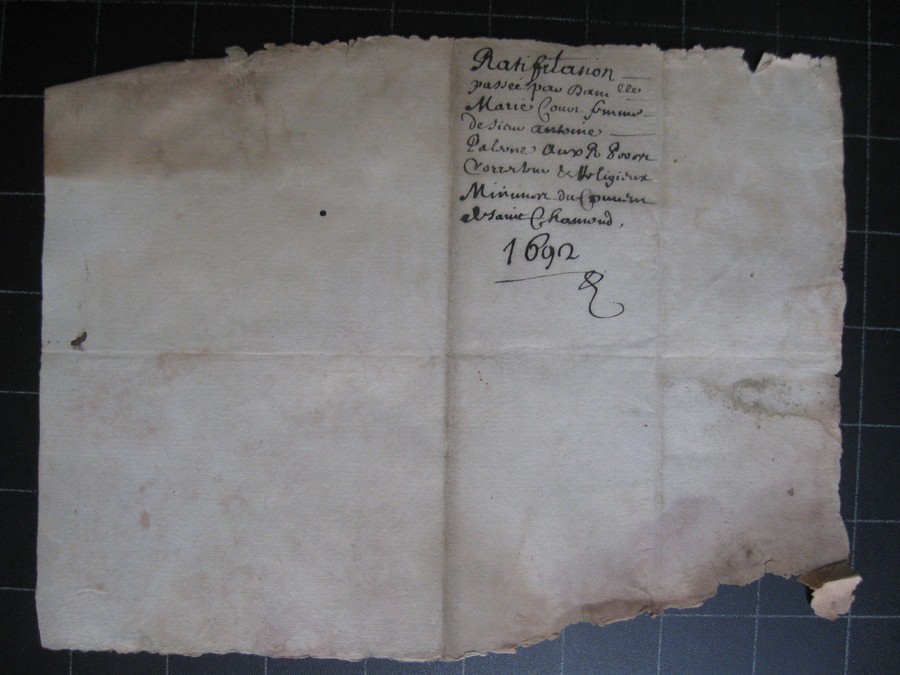 Ratifitasion
passée par Dam lle
Marie Couur femme
de sieur Antoine
Palerne Aux R Peres
Correcteur & Religieux
Minimes du Couuent
de saint Chamond,
1692